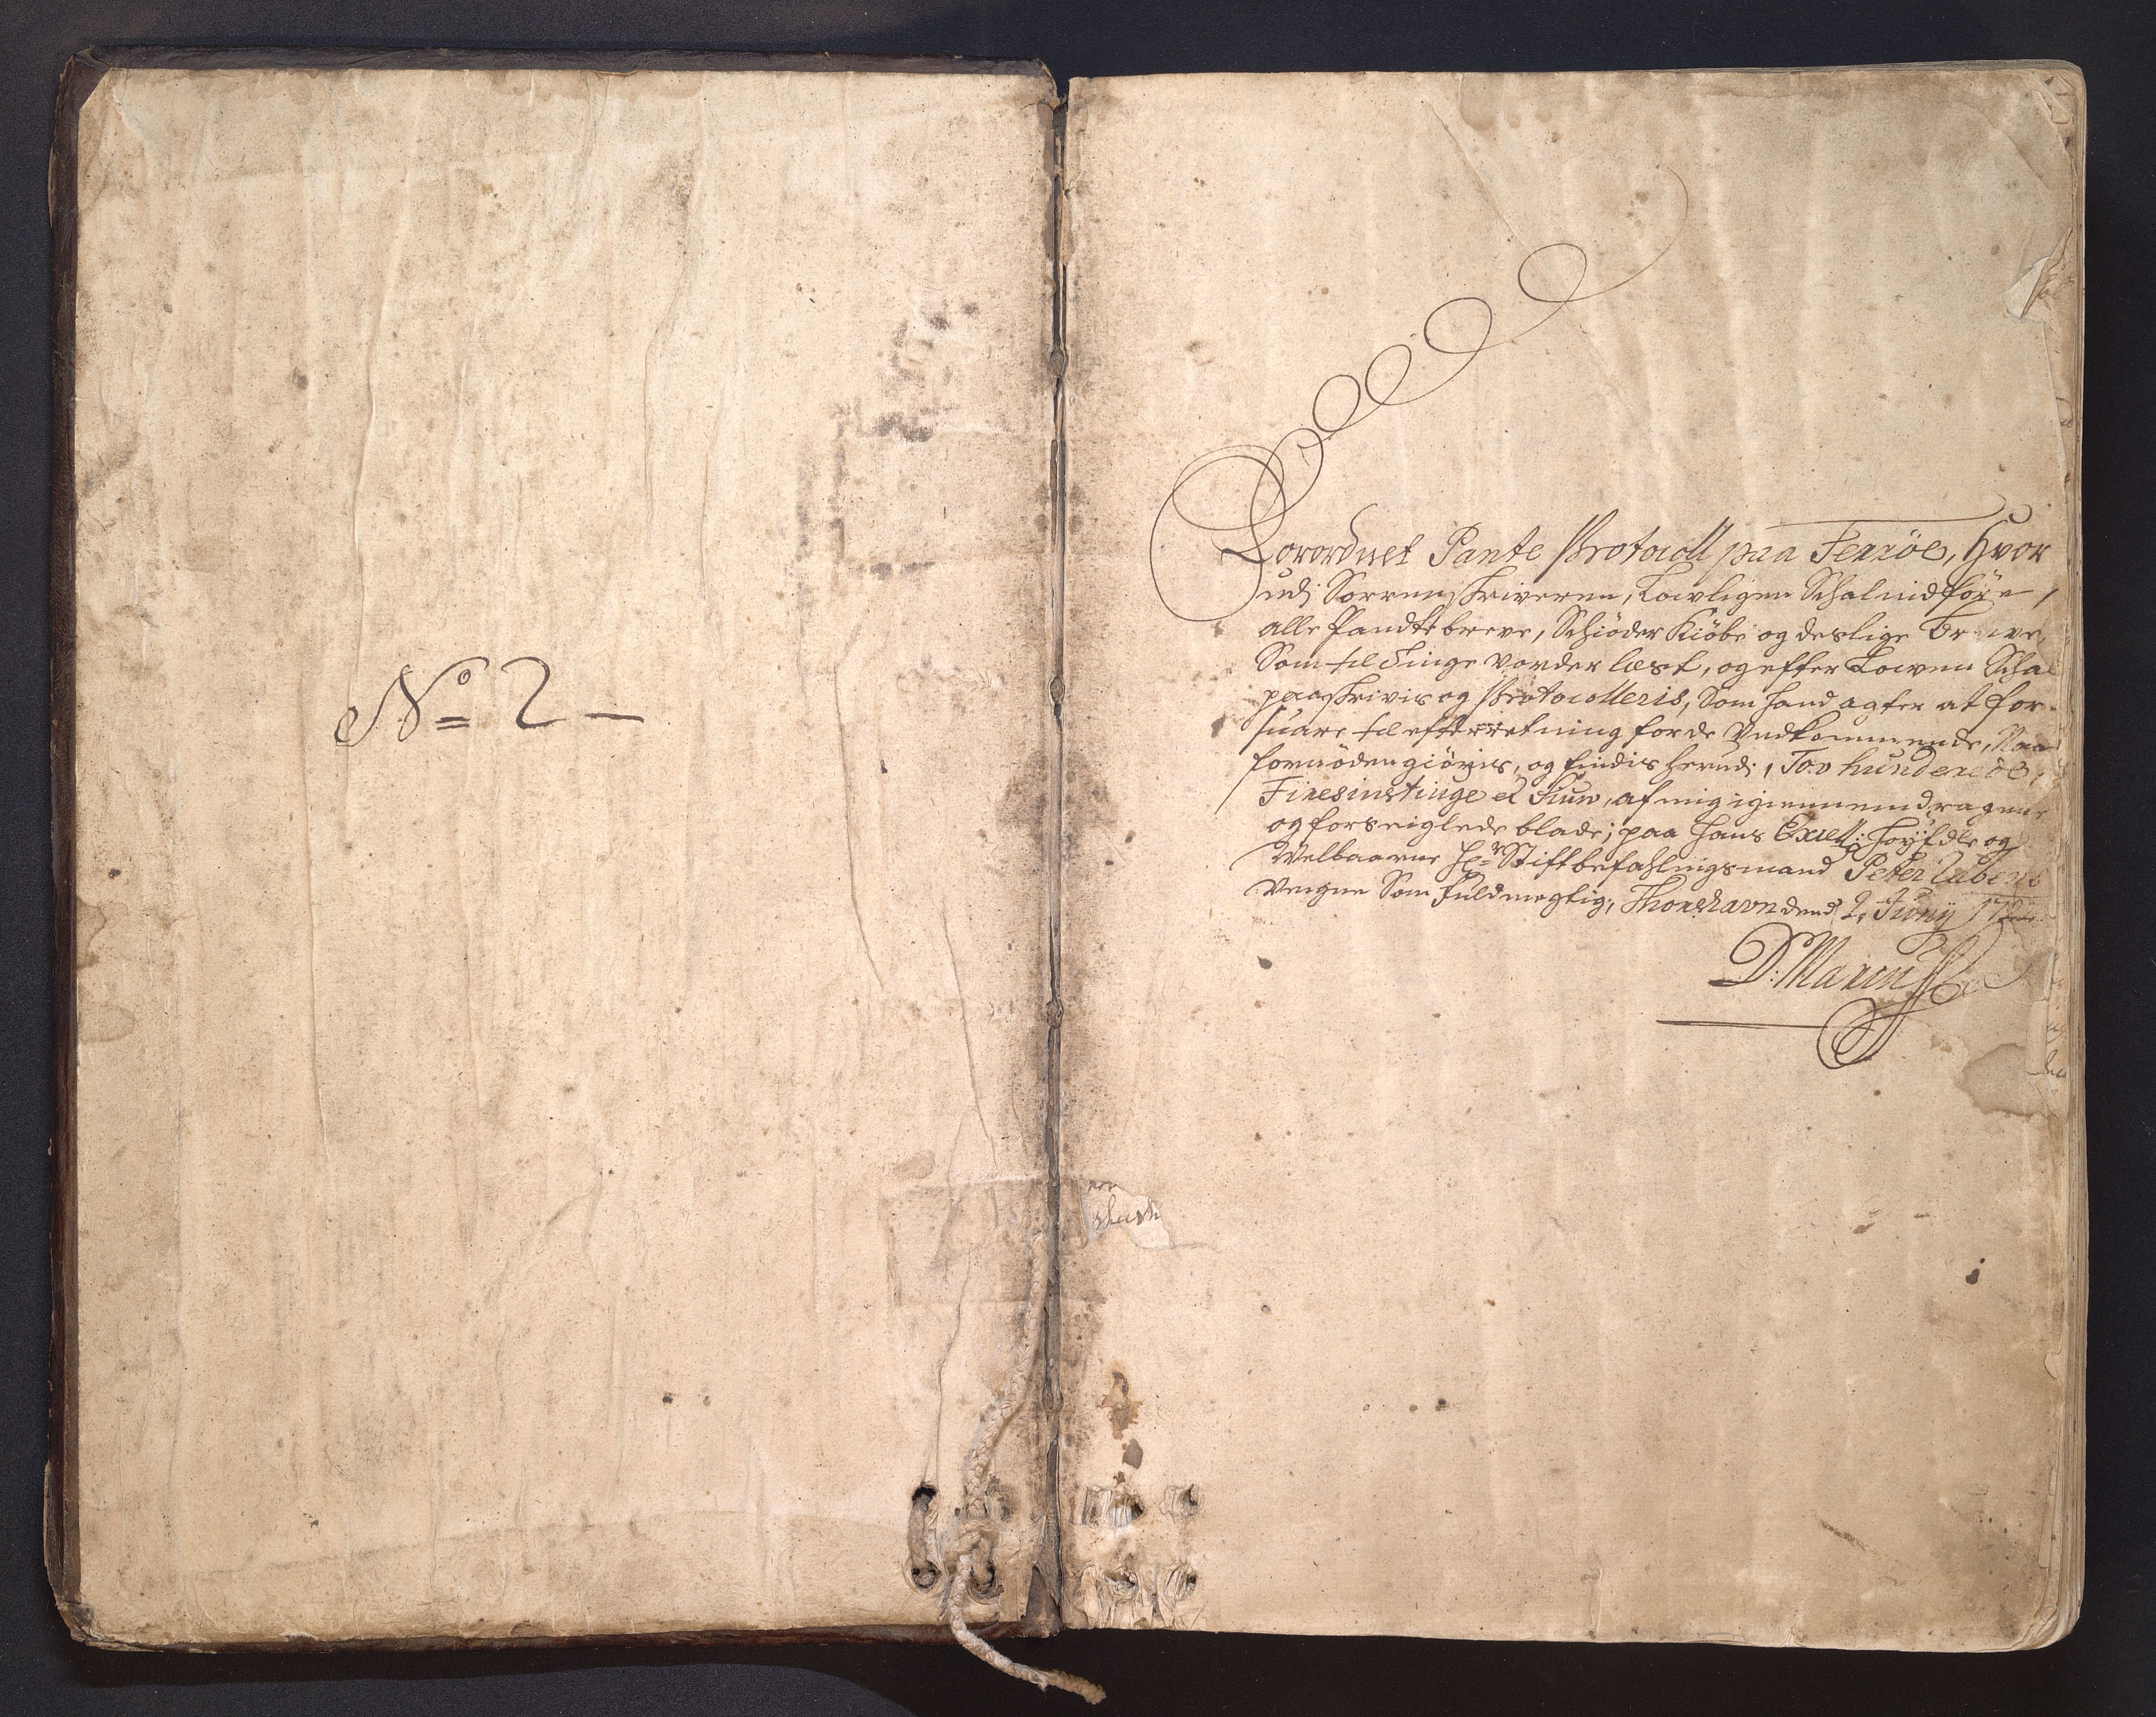 No 2 —
Forordnet Pante Protocoll paa Ferröe, Hvor
udj Sorrenskriveren, Lovligen Schal indföre,
alle Pandte breve, Schiöder Kiöbe og deslige breve,
Som til Tinge vorder læst, og efter Lowen Schal
paaskrivis og Protocolleris, Som hand agter at for-
suare til efterretning for de Vedkommende, Naar
fornöden giöris, og findis herudj, Tov hunderede,
Firesinstiuge af mig igiennemdragene
og forseiglede blade; paa Hans Excell: Höyædle og
Velbaarne Hr Stiftbefahlingsmand Peter
Vengne Som Fuldmegtig, Thorshavn dend 2, Juny
D: